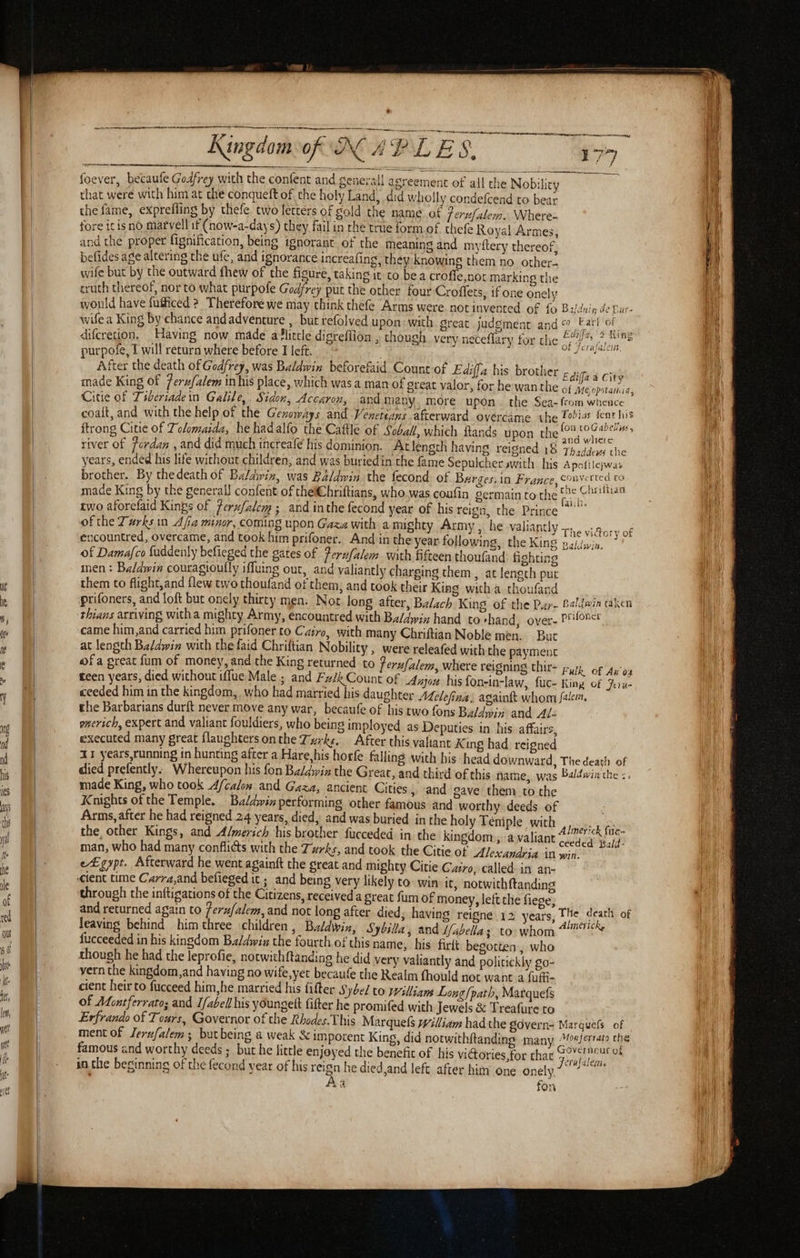 Kingdom of NAPLES, 177
soever, because Godfrey with the consent and generall agreement of all the Nobility
that were with him at the conquest of the holy Land, did wholly condescend to bear
the same, expressing by these two letters of gold the name of Jerusalem. Where-
fore it is no marvell if (now-a-days) they fail in the true form of these Royal Armes,
and the proper signification, being ignorant of the meaning and mystery thereof,
besides age altering the use, and ignorance increasing, they knowing them no other-
wise but by the outward shew of the figure, taking it to be a crosse, not marking the
truth thereof, nor to what purpose Godfrey put the other four Crossets, if one onely
would have sufficed? Therefore we may think these Arms were not invented of so
wise a King by chance and adventure, but resolved upon with great judgment and
discretion. Having now made a little digression, though very necessary for the
purpose, I will return where before I left.
Baldnin de Bur-
co Earl of
Edissa, 2 King
of Jerusalem.
After the death of Godfrey, was Baldwin beforesaid Count of Edissa his brother
made King of Jerusalem in his place, which was a man of great valor, for he wan the
Citie of Tiberiade in Galile, Sidon, Accaron, and many more upon the Sea-
coast, and with the help of the Genoways and Venetians afterward overcame the
strong Citie of Tolomaida, he had also the Castle of Soball, which stands upon the
river of Jordan, and did much increase his dominion. At length having reigned 18
years, ended his life without children, and was buried in the same Sepulcher with his
brother. By the death of Baldwin, was Baldwin the second of Burges, in France,
made King by the generall consent of the Christians, who was cousin germain to the
two aforesaid Kings of Jerusalem; and in the second year of his reign, the Prince
of the Turks in Asia minor, coming upon Gaza with a mighty Army, he valiantly
encountred, overcame, and took him prisoner. And in the year following, the King
of Damasco suddenly besieged the gates of Jerusalem with fifteen thousand fighting
men: Baldwin couragiously issuing out, and valiantly charging them, at length put
them to flight, and slew two thousand of them, and took their King with a thousand
prisoners, and lost but onely thirty men. Not long after, Balach King of the Par-
thians arriving with a mighty Army, encountred with Baldwin hand to hand, over-
came him, and carried him prisoner to Cairo, with many Christian Noble men. But
at length Baldwin with the said Christian Nobility, were released with the payment
of a great sum of money, and the King returned to Jerusalem, where reigning thir-
teen years, died without issue Male; and Fulk Count of Anjou his son-in-law, suc-
ceeded him in the kingdom, who had married his daughter Melesina; against whom
the Barbarians durst never move any war, because of his two sons Baldwin and Al-
merich, expert and valiant souldiers, who being imployed as Deputies in his affairs,
executed many great slaughters on the Turks. After this valiant King had reigned
11 years, running in hunting after a Hare, his horse falling with his head downward,
died presently. Whereupon his son Baldwin the Great, and third of this name, was
made King, who took Ascalon and Gaza, ancient Cities, and gave them to the
Knights of the Temple. Baldwin performing other famous and worthy deeds of
Arms, after he had reigned 24 years, died, and was buried in the holy Temple with
the other Kings, and Almerich his brother succeded in the kingdom, a valiant
man, who had many conflicts with the Turks, and took the Citie of Alexandria in
Ægypt. Afterward he went against the great and mighty Citie Cairo, called in an-
cient time Carra, and besieged it; and being very likely to win it, notwithstanding
through the instigations of the Citizens, received a great sum of money, left the siege,
and returned again to Jerusalem, and not long after died, having reigne 12 years,
leaving behind him three children, Baldwin, Sybilla, and Isabella; to whom
succeeded in his kingdom Baldwin the fourth of this name, his first begotten, who
though he had the leprosie, notwithstanding he did very valiantly and politickly go-
vern the kingdom, and having no wife, yet because the Realm should not want a suffi-
cient heir to succeed him, he married his sister Sybel to William Long spath, Marquess
of Montferrato; and Isabell his youngest sister he promised with Jewels & Treasure to
Erfrando of Tours, Governor of the Rhodes. This Marquess William had the govern-
ment of Jerusalem; but being a weak & impotent King, did notwithstanding many
famous and worthy deeds; but he little enjoyed the benefit of his victories, for that
in the beginning of the second year of his reign he died, and left after him one onely
Edissa a City
of Mesopotamia,
from whence
Tobias sent his
son to Gabellus,
and where
Thaddeus the
Apostle was
converted to
the Christian
faith.
The victory of
Baldwin.
Baldwin taken
prisoner
Fulk of An'ou
King of Jeru-
salem.
The death of
Baldwin the 2.
Almerick suc-
ceeded Bald-
win.
The death of
Almericke
Marquess of
Monferrato the
Governour of
Jerusalem.
Aa
son